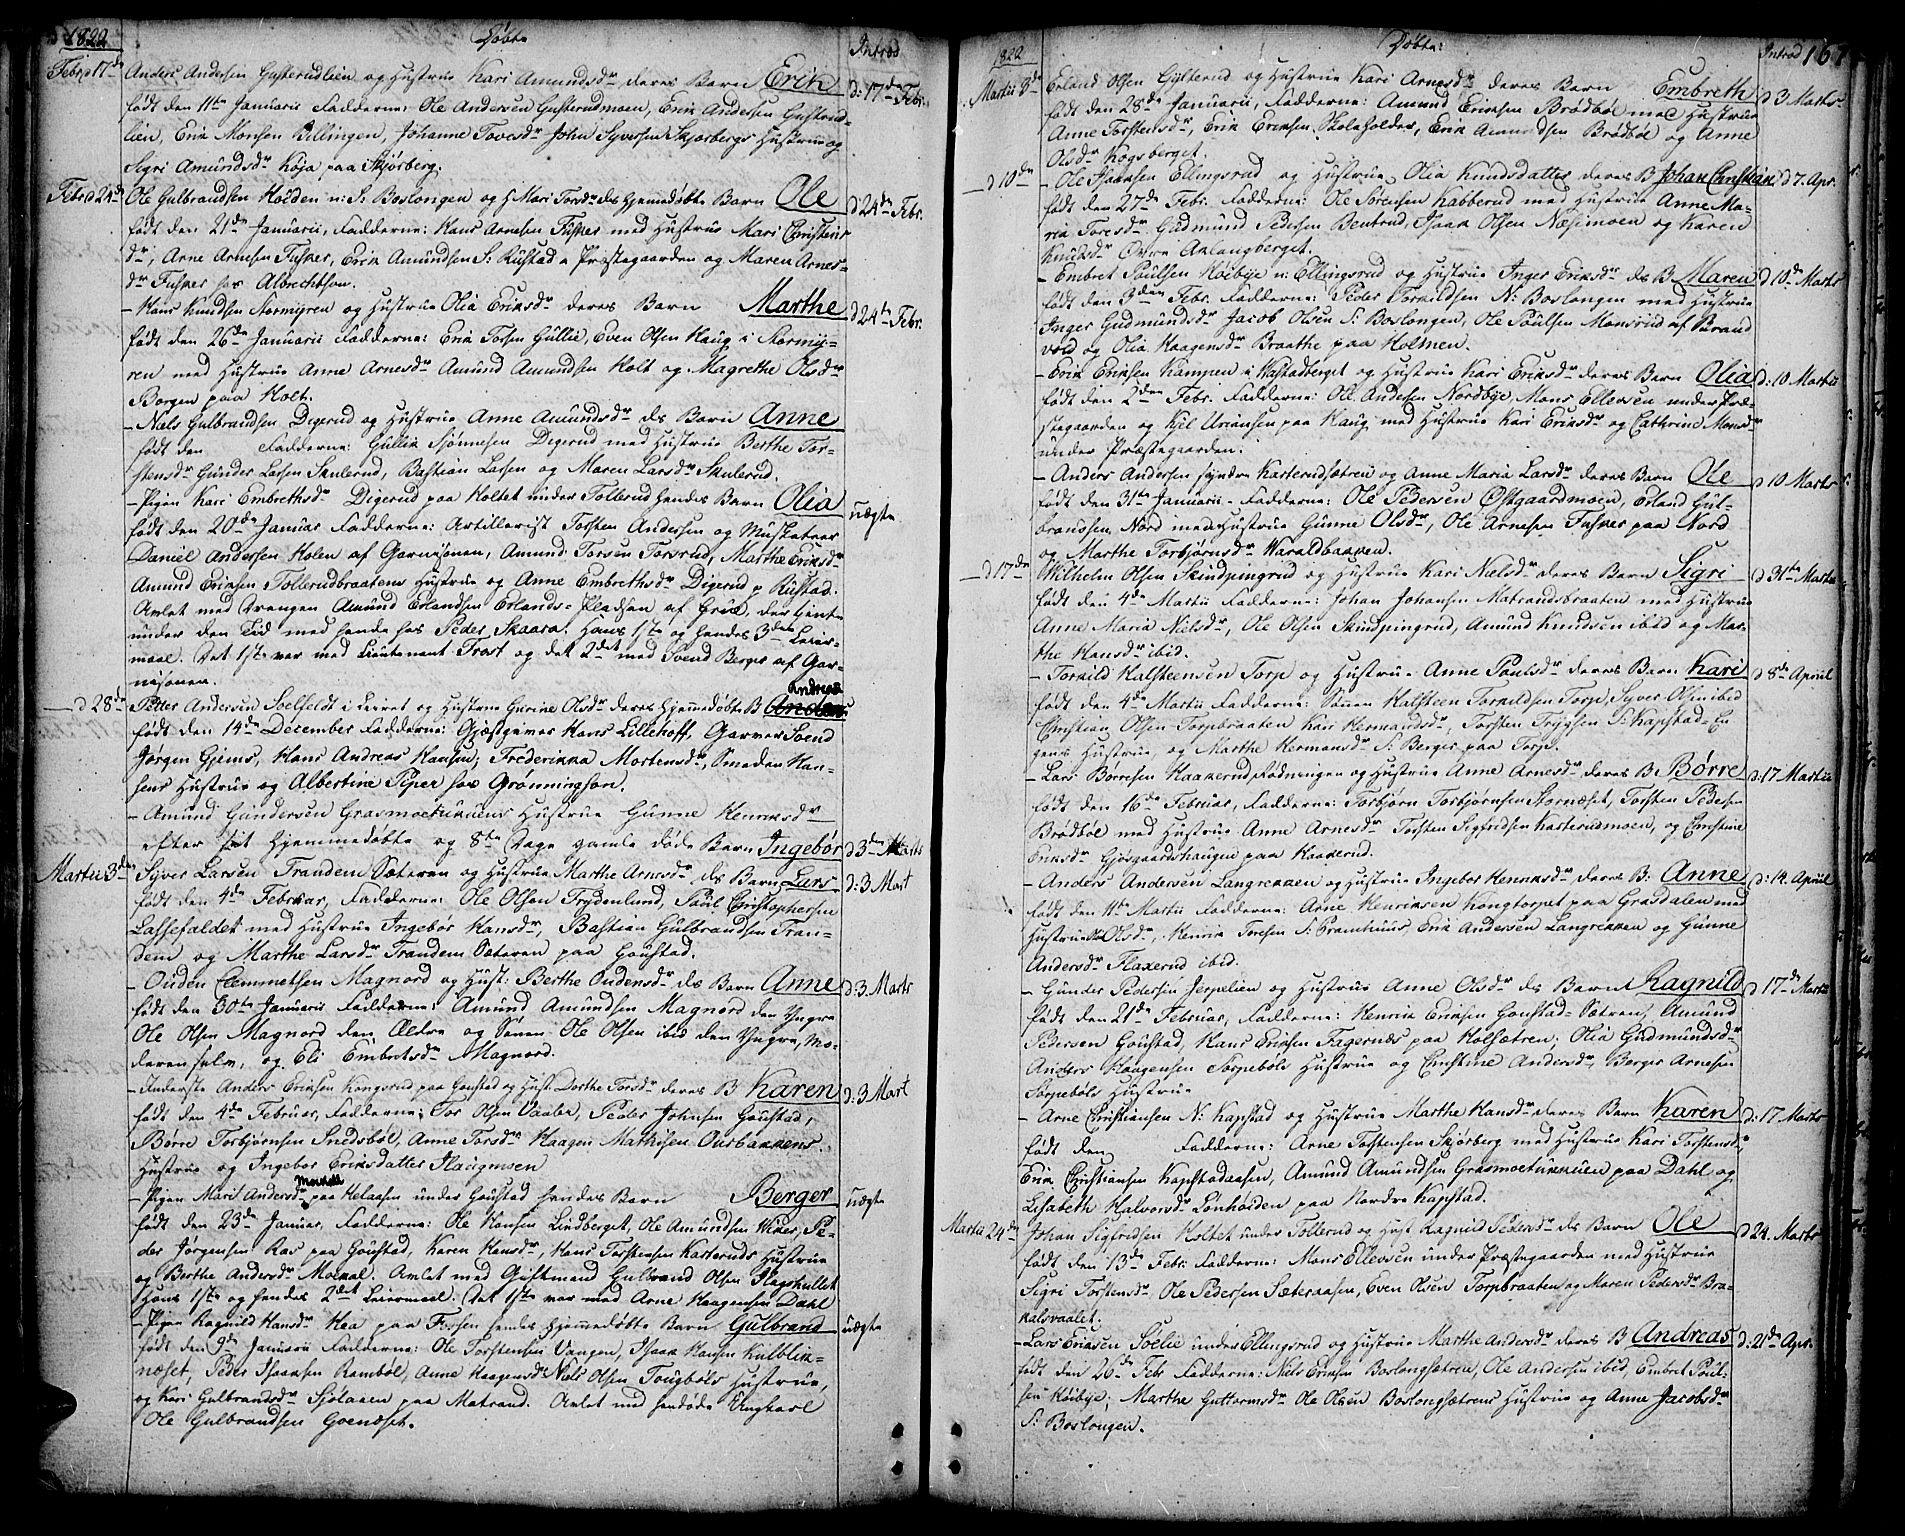 1822 Døbte Introd
Febr: 17de Anders Andersen Gusterudlien og Hustrue Kari Amundsdr deres Barn Erik d: 17de Febr.
født den 11te Januarii Fadderne: Ole Andersen Gusterudmoen, Erik Andersen Gusterud-
lien, Erik Monsen Billingen, Johanne Toresdr John Syversen Skjørbergs Hustrue og
Sigri Amundsdr Køja paa Skjørberg.
Febr d 24de Ole Gulbrandsen Holden n: S. Boslongen og H Mari Torsdr des Hjemmedøbte Barn Ole d 24de Febr.
født den 21de Januarii, Fadderne: Hans Arnesen Fusker med Hustrue Mari Christens
dr, Arne Arnesen Fusker, Erik Amundsen S. Rustad a Præstegaarden og Maren Arnes-
dr Fusker hos Albrechtsen.
- Hans Knudsen Stormyren og Hustrue Olia Eriksdr deres Barn Marthe d 24de Febr.
født den 26de Januarii Fadderne: Erik Torsen Gullie, Even Olsen Haug i Stormy-
ren med Hustrue Anne Arnesdr Amund Amundsen Holt og Magrethe Olsdr
Borgen paa Holt.
- Niels Gulbrandsen Digerud og Hustrue Anne Amundsdr ds Barn Anne
født den Fadderne: Gullik Sjønnesen Digerud med Hustrue Berthe Tor-
stensdr Gunder Larsen Skulerud, Bastian Larsen og Maren Larsdr Skulerud.
- Pigen Kari Embrethsdr Digerud paa Holtet under Tollerud hendes Barn Olia uægte
født den 20de Januar Fadderne: Artillerist Torsten Andersen og Musketeer
Daniel Andersen Holen af Garnisonen, Amund Torsen Torsrud, Marthe Eriksdr
Amund Eriksen Tollerudbraatens Hustrue og Anne Embrethsdr Digerud p Rustad.
Avlet med Drengen Amund Erlandsen Erlands-Pladsen af Grue, der tiente
under den Tid med hende hos Peder Skaara. Hans 1ste og hendes 3die Leier-
maal. Det 1ste var med Lieutenant Frost og det 2det med Svend Berger af Gar-
nisonen.
- d 28de Petter Andersen Soelfeldt i Leiret og Hustrue Gurine Olsdr deres Hjemmedøbte B Andreas
født den 14de December Fadderne: Gjæstgever Hans Lillehoff, Garver Svend
Jørgen Gjems, Hans Andreas Hansen, Frederikka Mortensdr, Smeden Han-
sens Hustrue og Albertine Piper hos Grønningson.
- Amund Gundersen Grasmoetukkuens Hustrue Gunne Henriksdr
efter sit Hjemmedøbte og 8te Dage gamle døde Barn Ingebør d 3de Marts
Martii 3de Syver Larsen Trandem Sæteren og Hustrue Marthe Arnesdr ds Barn Lars d: 3 Mart
født den 4de Februar, Fadderne: Ole Olsen Frydenlund, Poul Christophersen
Lassefaldet med Hustrue Ingebør Hansdr, Bastian Gulbrandsen Tran-
dem og Marthe Larsdr Trandem Sæteren paa Goustad.
- Ouden Clemmetsen Magnord og Hust: Berthe Oudensdr ds Barn Anne d: 3 Marts
født den 30te Januarii Fadderne: Amund Amundsen Magnord den Yngre
Ole Olsen Magnord den Ældre og Sønen Ole Olsen ibid den Yngre, Mo-
deren selv, og Eli Embretsdr Magnord.
- Inderste Anders Eriksen Kongsrud paa Goustad og Hust: Dorthe Torsdr deres B Karen d: 3 Mart
født den 4de Februar, Fadderne: Tor Olsen Vaaler, Peder Johnsen Goustad,
Børre Torbjørnsen Snedsbøl, Anne Torsdr Haagen Mathisen Ourbakkens
Hustrue og Ingebor Eriksdatter Haugmoen
- Pigen Marit Andersdr Mokal paa Helaasen under Goustad hendes Barn Berger uægte
født den 23de Januar, Fadderne: Ole Hansen Lindberget, Ole Amundsen Viker, Pe-
der Jørgensen Ras paa Goustad, Karen Hansdr, Hans Torstensen Karteruds Hustrue
og Berthe Andersdr Mokal. Avlet med Giftmand Gulbrand Olsen Flagskullet
Hans 1ste og hendes 2det Leiermaal. Det 1ste var med Arne Haagensen Dahl
- Pigen Ragnild Hansdr Haa paa Forsen hendes Hjemmedøbte Barn Gulbrand uægte
født den 9de Januarii Fadderne: Ole Torstensen Vangen, Isaak Hansen Kulblik-
næset, Peder Isaaksen Rambøl, Anne Haagensdr Niels Olsen Tougbøls Hustrue,
og Kari Gulbrandsdr Sjølaaen paa Matrand. Avlet med hendøde Ungkarl
Ole Gulbrandsen Goenæset.
1822 Døbte: Introd 167
Martii 3de Erland Olsen Gylterud og Hustrue Kari Arnesdr deres Barn Embreth d 3 Marts
født den 28de Januarii, Fadderne: Amund Eriksen Brødbøl med Hustrue
Anne Torstensdr, Erik Eriksen Skoleholder, Erik Amundsen Brødbøl og Anne
Olsdr Kogsberget.
- d 10de - Ole Isaksen Ellingsrud og Hustrue Olia Knudsdatter deres B Johan Christian d 7. Apr.
født den 27de Febr. Fadderne: Ole Sørensen Kabberud med Hustrue Anne Ma-
ria Toresdr Gudmund Pedersen Bentrud, Isaak Olsen Næsimoen og Karen
Knudsdr Øvre Aklangberget.
- Embret Poulsen Høibye n: Ellingsrud og Hustrue Inger Eriksdr ds B Maren d 10de Marts
født den 3den Febr. Fadderne: Peder Torkildsen N: Boslongen med Hustrue
Inger Gudmundsdr Jacob Olsen S: Boslongen, Ole Poulsen Monsrud af Brand
vold og Olia Haagensdr Braathe paa Holmen.
- Erik Eriksen Kampen i Vastadberget og Hustrue Kari Eriksdr deres Barn Olia d. 10 Martii
født den 2den Febr. Fadderne: Ole Andersen Nordbye, Mons Ellevsen under Præ-
stegaarden og Kjel Uriansen paa Haug med Hustrue Kari Eriksdr og Cathrine Monsdr
under Præstegaarden.
- Anders Andersen Syndre Karterudsætren og Anne Maria Larsdr deres Barn Ole d 10 Marts
født den 31te Januarii - Fadderne: Ole Pedersen Østgaardmoen, Erland Gul-
brandsen Nord med Hustrue Gunne Olsdr, Ole Arnesen Fusker paa Nord
og Marthe Torbjørnsdr Varaldbakken.
- d 17de Wilhelm Olsen Skindpingrud og Hustrue Kari Nielsdr deres Barn Sigri d 31te Martii
født den 4de Martii Fadderne: Johan Johansen Matrandsbraaten med Hustrue
Anne Maria Nielsdr, Ole Olsen Skindpingrud, Amund Knudsen ibid og Mar-
the Hansdr ibid.
- Torkild Halsteensen Torp og Hustrue Anne Poulsdr deres Barn Kari d 8de April
født den 4de Martii Fadderne: Sønen Halsteen Torkildsen Torp, Syver Olsen ibid
Christian Olsen Torpbraaten Kari Hermandsdr, Torsten Trygsen S: Kapstad-En
gens Hustrue og Marthe Hermansdr S: Berger paa Torp.
- Lars Børresen Haakerud Rødningen og Hustrue Anne Arnesdr deres B Børre d: 17 Martii
født den 16de Februar, Fadderne: Torbjørn Torbjørnsen Stornæset, Torsten Peders-
Brødbøl med Hustrue Anne Arnesdr Torsten Sigfridsen Karterudmoen, og Christine
Eriksdr Gjøsgaardshaugen paa Haakerud.
- Anders Andersen Langrekken og Hustrue Ingebor Henriksdr deres B: Anne d: 14. April
født den 11te Martii Fadderne: Arne Henriksen Kongtorpet paa Grasdalen med
Hustrue Olsdr, Henrik Torsen S: Pramhuus Erik Andersen Langrekken og Gunne
Andersdr Flakerud ibid.
- Gunder Pedersen Jerpelien og Hustrue Anne Olsdr ds Barn Ragnild d 17de Martii
født den 21de Februar, Fadderne: Henrik Eriksen Goustad-Sætren, Amund
Pedersen Goustad, Hans Eriksen Fagernæs paa Holsætren, Olia Gudmundsdr
Anders Haagensen Torpebøls Hustrue og Christine Andersdr, Berger Arnesen
Torpebøls Hustrue
- Arne Christiansen N: Kapstad og Hustrue Marthe Hansdr deres Barn Karen d: 17 Marts
født den Fadderne: Arne Torstensen Skjørberg med Hustrue Kari Torstensdr,
Erik Christiansen Kapstadaasen, Amund Amundsen Grasmoetukkuen paa Dahl og
Lisabeth Halvorsdr Lønholden paa Nordre Kapstad.
Martii 24de Johan Sigfridsen Holtet under Tollerud og Hust Ragnild Pedersdr ds Barn Ole d 24. Marts
født den 13de Febr. Fadderne: Mons Ellevsen under Præstegaarden med Hustrue
Sigri Torstensdr Ole Pedersen Sæteraasen, Even Olsen Torpbraaten og Maren Pedersdr Bra-
kalsvaalet.
- Lars Eriksen Soelie under Ellingsrud og Hustrue Marthe Andersdr deres B Andreas d: 21de Apr.
født den 26de Febr Fadderne: Niels Eriksen Boslongsætren, Ole Andersen ibid, Embret Poul-
sen Høibye; Marthe Guttormsdr Ole Olsen Boslongsætrens Hustrue og Anne Jacobsdr
S: Boslongen.